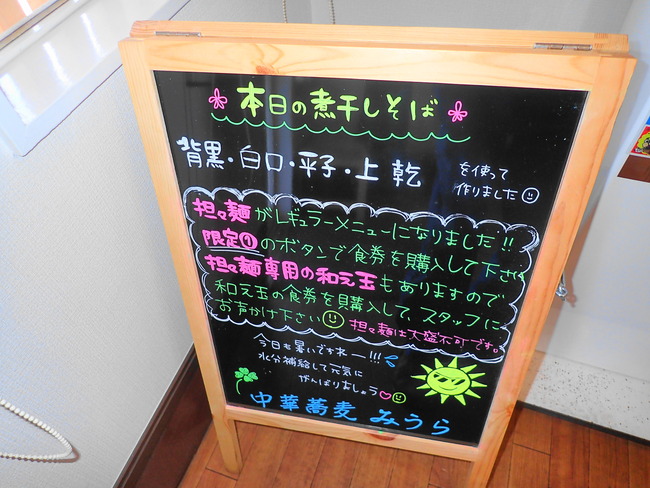 本日の煮干しそば
背黒・白口・平子・上乾
を使って
作りました
担々麺がレギュラーメニューになりました!!
限定①のボタンで食券を購入して下さい
担々麺専用の和え玉もありますので
和え玉の食券を購入して、スタッフに
お声かけ下さい
担々麺は大盛不可です。
今日も暑いですねー!!!
水分補給して元気に
がんばりましょう
中華蕎麦 みうら